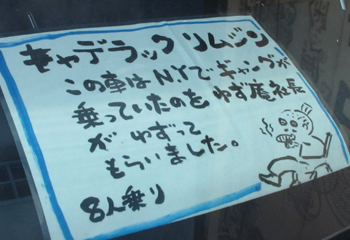 キャデラックリムジン
この車はNYでギャングが
乗っていたのをゆず庵社長
が ゆずって
もらいました。
8人乗り